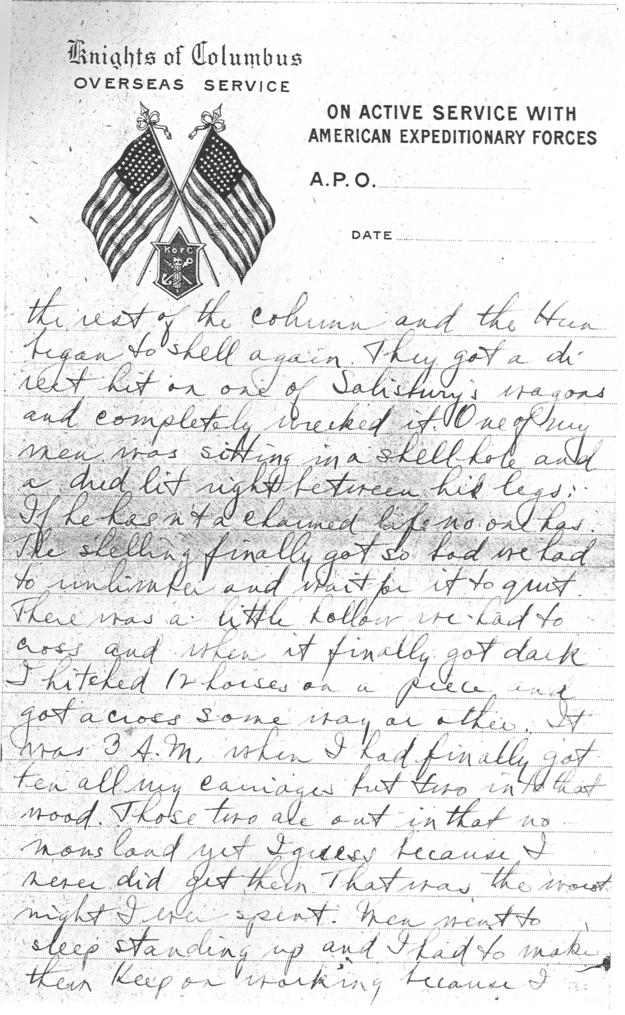 Knights of Columbus
OVERSEAS SERVICE
ON ACTIVE SERVICE WITH
AMERICAN EXPEDITIONARY FORCES
A.P.O.
DATE
K of C
the rest of the column and the Hun
began to shell again. They got a di
rect hit on one of Salisbury's wagons
and completely wrecked it. One of my
men was sitting in a shell hole and
a dud lit right between his legs.
If he hasn't a charmed life no one has.
The shelling finally got so bad we had
to unlimber and wait for it to quit.
There was a little hollow we had to
cross and when it finally got dark
I hitched 12 horses on a piece and
got across some way or other. It
was 3 A.M. when I had finally got
ten all my carriages but two into that
wood. Those two are out in that no
mans land yet I guess because I
never did get them That was the worst
night I ever spent. Men went to
sleep standing up and I had to make
them keep on working because I